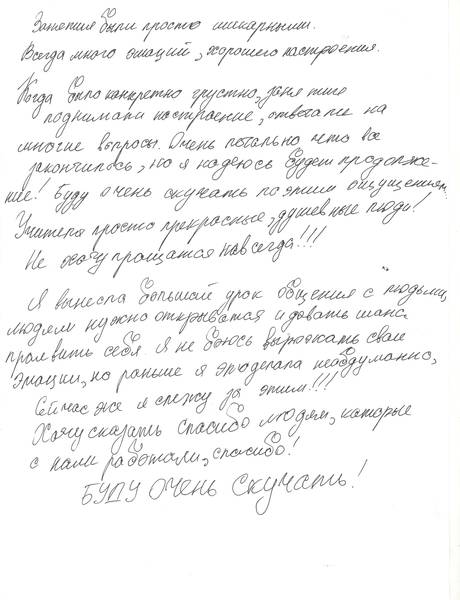 Занятия были просто шикарными.
Всегда много эмоций, хорошего настроения.
Когда было конкретно грустно, занятие
поднимали настроение, отвечали на
многие вопросы. Очень печально что все
закончилось, но я надеюсь будет продолже-
ние! Буду очень скучать по этим ощущениям
Учителя просто прекрасные, душевные люди!
Не хочу прощатся навсегда!!!
Я вынесла большой урок общения с людьми,
людям нужно открыватся и давать шанс
проявить себя. Я не боюсь выражать свои
эмации, но раньше я это делала необдуманно,
Сейчас же я слежу за этим!!!
Хачу сказать спасибо людям, которые
с нами работали, спасибо!
БУДУ ОЧЕНЬ СКУЧАТЬ!